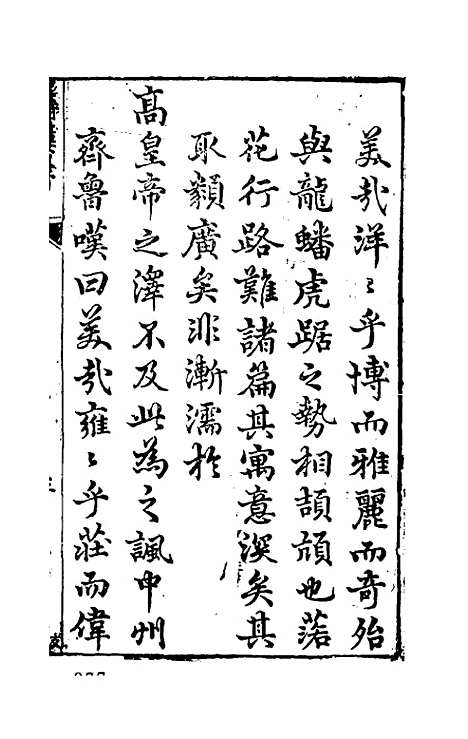 美哉洋〻乎博而雅麗而奇殆
與龍蟠虎踞之勢相頡頏也落
花行路難諸篇其寓意深矣其
取類廣矣非漸濡於
高皇帝之澤不及此為之諷中州
齊魯嘆曰美哉雍〻乎莊而偉